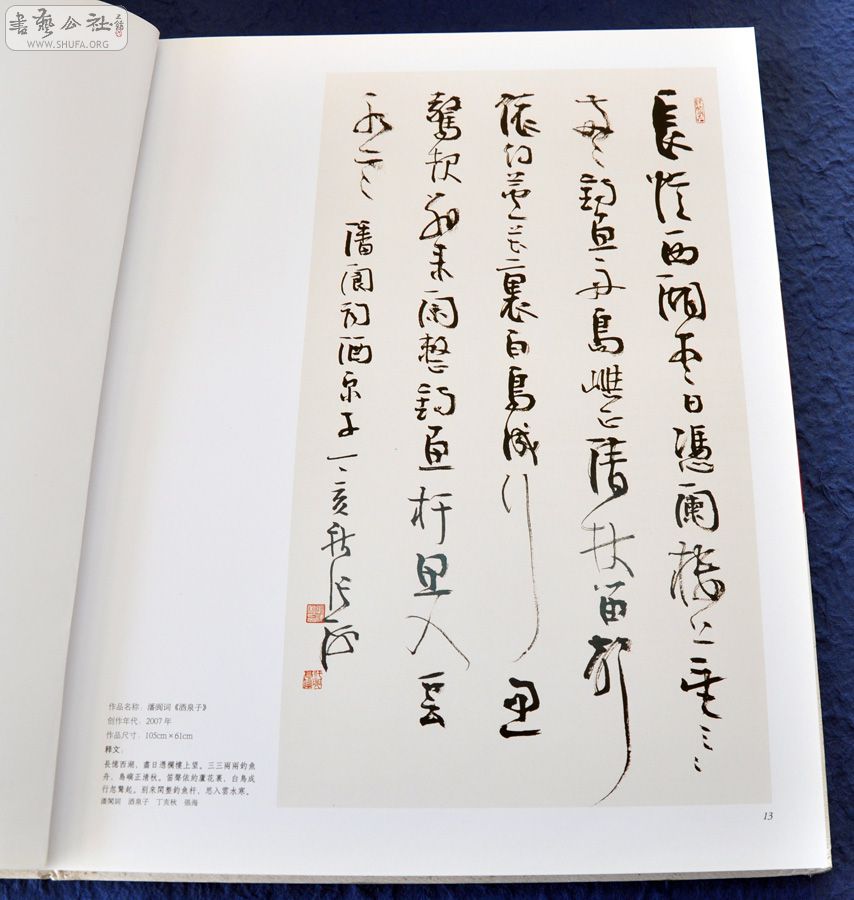 書藝公社
WWW.SHUFA.ORG
長憶西湖盡日憑闌樓上望三三
兩兩釣魚舟島嶼正清秋笛聲
依約蘆花裏白鳥成行忽
驚起別來閑整釣魚杆思入雲
水寒 潘閬詞酒泉子丁亥秋張海
作品名称：潘阆词《酒泉子》
创作年代：2007年
作品尺寸：105cm×61cm
释文：
長憶西湖，盡日憑欄樓上望。三三兩兩釣魚
舟，島嶼正清秋。笛聲依約蘆花裏，白鳥成
行忽驚起。别來閑整釣魚杆，思入雲水寒。
潘閬词 酒泉子 丁亥秋 張海
13